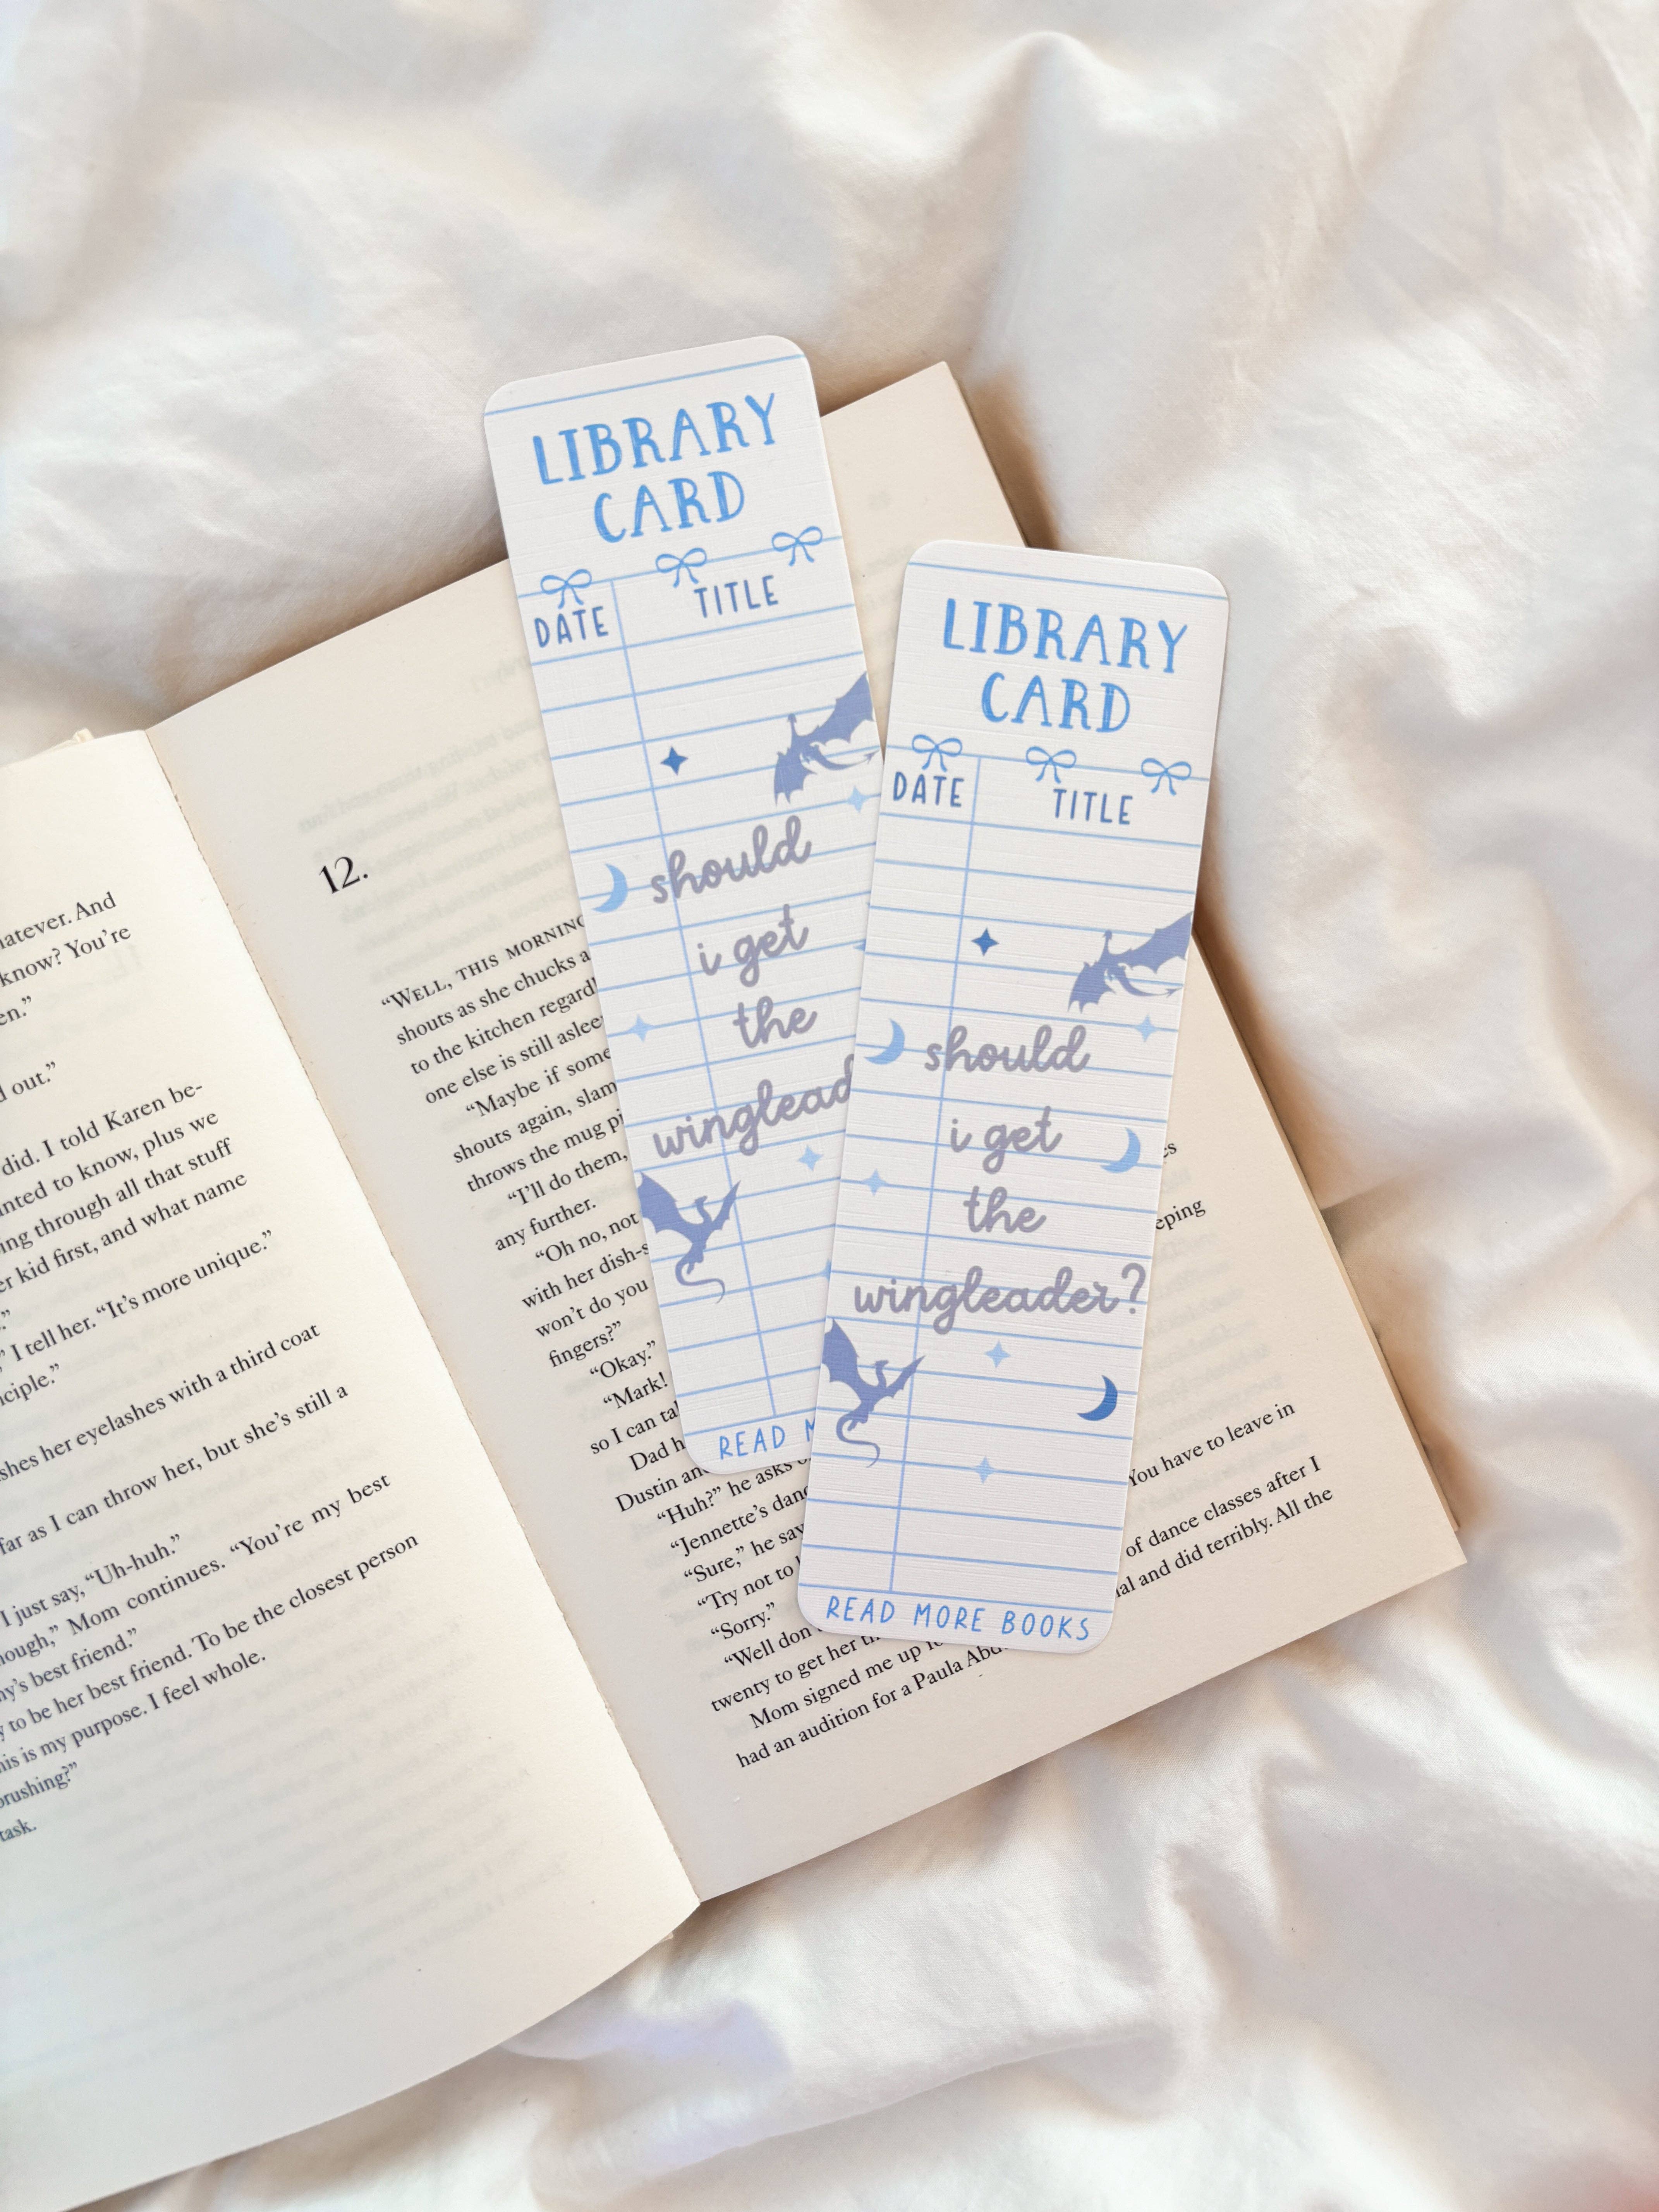 LIBRARY
CARD
DATE TITLE
should
i get
the
winglead
READ
LIBRARY
CARD
DATE TITLE
should
i get
the
wingleader?
READ MORE BOOKS
And
know? You're
out."
did. I told Karen be-
to know, plus we
through all that stuff
kid first, and what name
I tell her. "It's more unique."
her eyelashes with a third coat
far as I can throw her, but she's still a
I just say, "Uh-huh."
Mom continues. "You're my best
best friend."
to be her best friend. To be the closest person
is my purpose. I feel whole.
task.
12.
"WELL, THIS MORNING
shouts as she chucks a
to the kitchen regard
one else is still aslee
"Maybe if some
shouts again, slam
throws the mug pi
"I'll do them,
any further.
"Oh no, not
with her dish-s
won't do you
fingers?"
"Okay."
"Mark!
so I can ta
Dad h
Dustin an
"Huh?" he asks
"Jennette's danc
"Sure," he say
"Try not to
"Sorry."
"Well don
twenty to get her
Mom signed me up
had an audition for a Paula Abd
eping
You have to leave in
of dance classes after I
and did terribly. All the